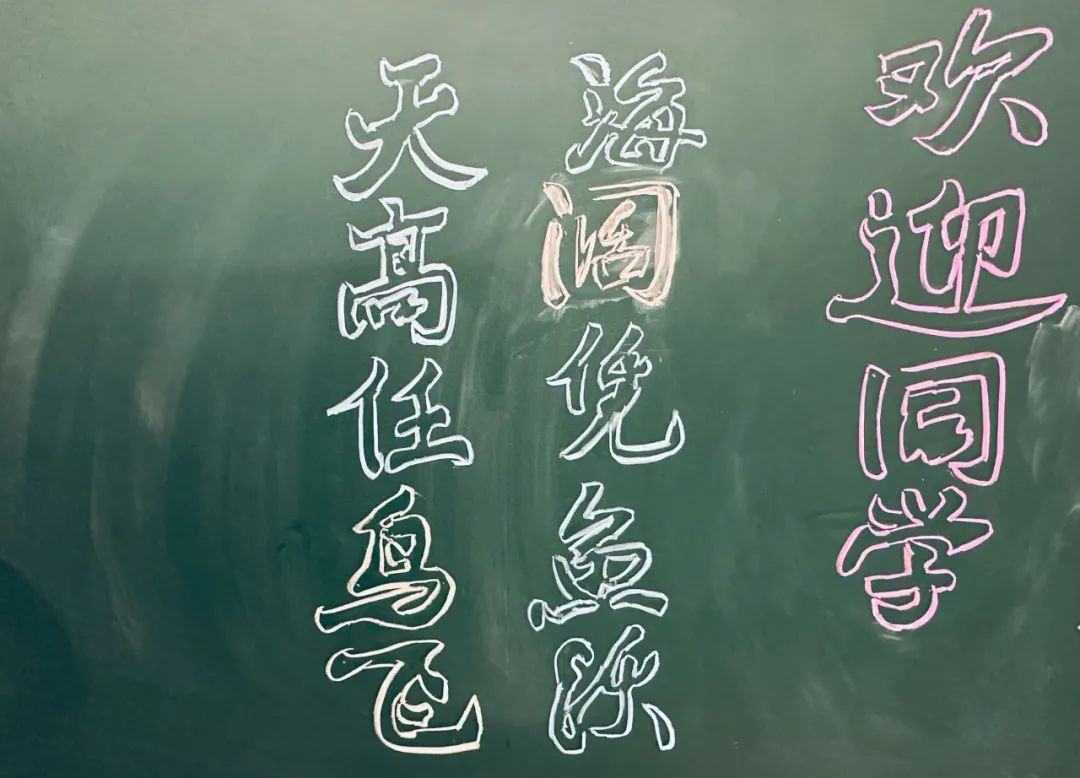 欢迎同学
海阔凭鱼跃
天高任鸟飞